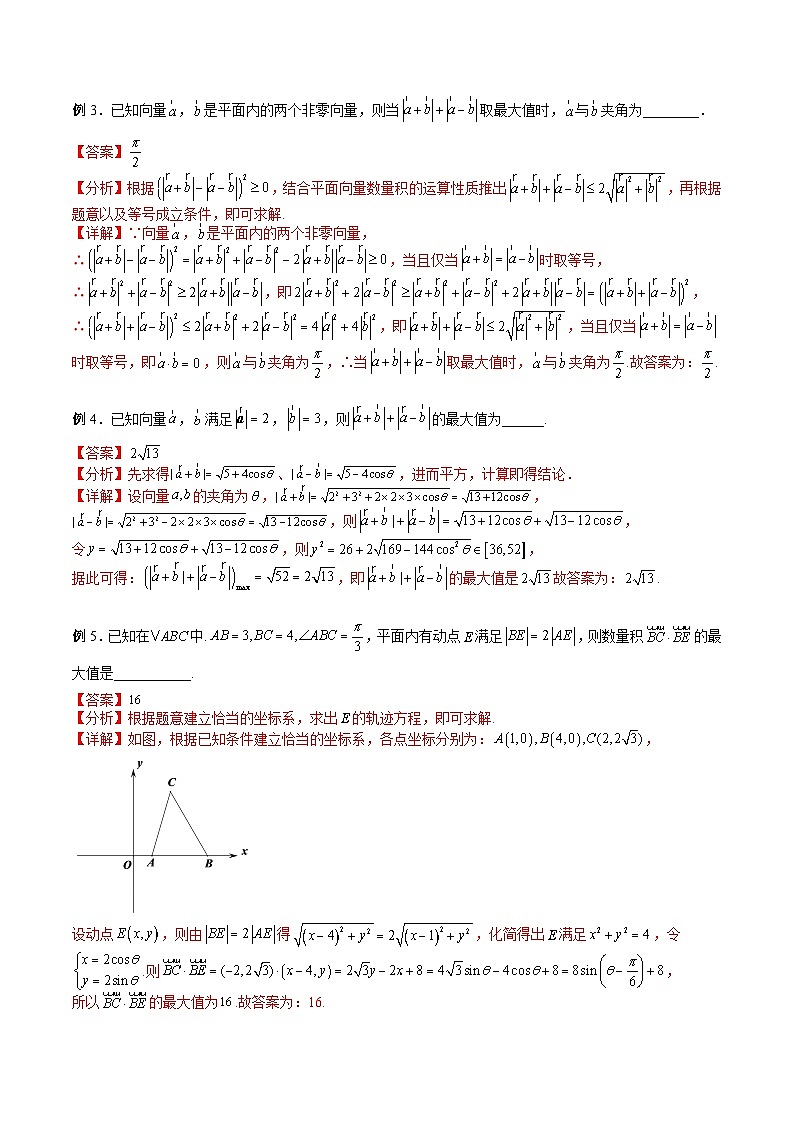 例 3．已知向量 a⃗，b⃗ 是平面内的两个非零向量，则当 |a⃗+b⃗|+|a⃗−b⃗| 取最大值时，a⃗与b⃗ 夹角为________．
【答案】π/2
【分析】根据 (|a⃗+b⃗|−|a⃗−b⃗|)² ≥ 0，结合平面向量数量积的运算性质推出 |a⃗+b⃗|+|a⃗−b⃗| ≤ 2√(|a⃗|²+|b⃗|²)，再根据
题意以及等号成立条件，即可求解.
【详解】∵向量 a⃗，b⃗ 是平面内的两个非零向量，
∴ (|a⃗+b⃗|−|a⃗−b⃗|)² = |a⃗+b⃗|²+|a⃗−b⃗|²−2|a⃗+b⃗||a⃗−b⃗| ≥ 0，当且仅当 |a⃗+b⃗|=|a⃗−b⃗| 时取等号，
∴ |a⃗+b⃗|²+|a⃗−b⃗|² ≥ 2|a⃗+b⃗||a⃗−b⃗|，即 2|a⃗+b⃗|²+2|a⃗−b⃗|² ≥ |a⃗+b⃗|²+|a⃗−b⃗|²+2|a⃗+b⃗||a⃗−b⃗| = (|a⃗+b⃗|+|a⃗−b⃗|)²，
∴ (|a⃗+b⃗|+|a⃗−b⃗|)² ≤ 2|a⃗+b⃗|²+2|a⃗−b⃗|² = 4|a⃗|²+4|b⃗|²，即 |a⃗+b⃗|+|a⃗−b⃗| ≤ 2√(|a⃗|²+|b⃗|²)，当且仅当 |a⃗+b⃗|=|a⃗−b⃗|
时取等号，即 a⃗·b⃗=0，则 a⃗与b⃗ 夹角为 π/2，∴当 |a⃗+b⃗|+|a⃗−b⃗| 取最大值时，a⃗与b⃗ 夹角为 π/2.故答案为：π/2.
例 4．已知向量 a⃗，b⃗ 满足 |a⃗|=2，|b⃗|=3，则 |a⃗+b⃗|+|a⃗−b⃗| 的最大值为______.
【答案】2√13
【分析】先求得 |a⃗+b⃗|=√(5+4cosθ)、|a⃗−b⃗|=√(5−4cosθ)，进而平方，计算即得结论．
【详解】设向量 a,b 的夹角为 θ，|a⃗+b⃗|=√(2²+3²+2×2×3×cosθ)=√(13+12cosθ)，
|a⃗−b⃗|=√(2²+3²−2×2×3×cosθ)=√(13−12cosθ)，则 |a⃗+b⃗|+|a⃗−b⃗|=√(13+12cosθ)+√(13−12cosθ)，
令 y=√(13+12cosθ)+√(13−12cosθ)，则 y²=26+2√(169−144cos²θ)∈[36,52]，
据此可得：(|a⃗+b⃗|+|a⃗−b⃗|)max=√52=2√13，即 |a⃗+b⃗|+|a⃗−b⃗| 的最大值是 2√13 故答案为：2√13.
例 5．已知在VABC中. AB=3,BC=4,∠ABC=π/3，平面内有动点 E 满足 |BE|=2|AE|，则数量积 BC·BE 的最
大值是___________.
【答案】16
【分析】根据题意建立恰当的坐标系，求出 E 的轨迹方程，即可求解.
【详解】如图，根据已知条件建立恰当的坐标系，各点坐标分别为：A(1,0),B(4,0),C(2,2√3)，
y
C
O A B x
设动点 E(x,y)，则由 |BE|=2|AE| 得 √((x−4)²+y²)=2√((x−1)²+y²)，化简得出 E 满足 x²+y²=4，令
{x=2cosθ y=2sinθ .则 BC·BE=(−2,2√3)·(x−4,y)=2√3y−2x+8=4√3sinθ−4cosθ+8=8sin(θ−π/6)+8，
所以 BC·BE 的最大值为16.故答案为：16.